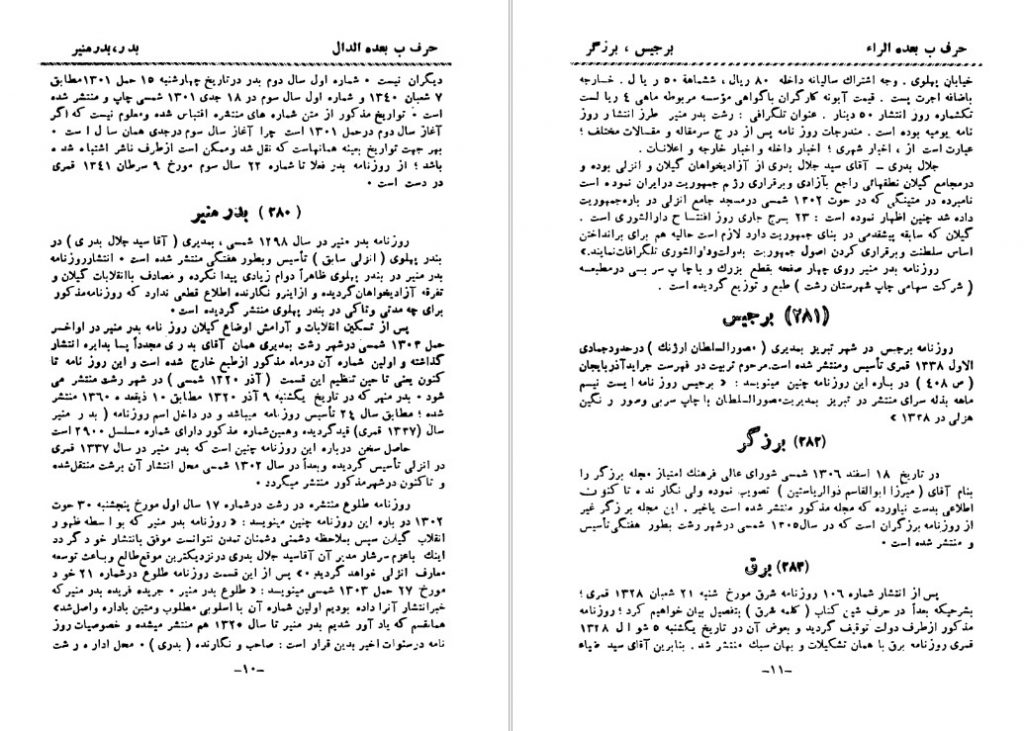 حرف ب بعده الدال
بدر، بدر منیر
دیگران نیست ٠ شماره اول سال دوم بدر درتاریخ چهارشنبه ١٥ حمل ١٣٠١مطابق
٧ شعبان ١٣٤٠ و شماره اول سال سوم در ١٨ جدی ١٣٠١ شمسی چاپ و منتشر شده
است ٠ تواریخ مذکور از متن شماره های منتشره اقتباس شده ومعلوم نیست که اگر
آغاز سال دوم درحمل ١٣٠١ است چرا آغاز سال سوم درجدی همان سال است ٠
بهر جهت تواریخ بعینه همانهاست که نقل شد وممکن است ازطرف ناشر اشتباه شده
باشد ؛ از روزنامه بدر فعلا تا شماره ٢٢ سال سوم مورخ ٩ سرطان ١٣٤١ قمری
در دست است ٠
(٢٨٠) بدر منیر
روزنامه بدر منیر در سال ١٢٩٨ شمسی ، بمدیری ( آقا سید جلال بدری ) در
بندر پهلوی ( انزلی سابق ) تأسیس وبطور هفتگی منتشر شده است ٠ انتشارروزنامه
بدر منیر در بندر پهلوی ظاهراً دوام زیادی پیدا نکرده و مصادف باانقلابات گیلان و
تفرقه آزادیخواهان گردیده و ازاینرو نگارنده اطلاع قطعی ندارد که روزنامه مذکور
برای چه مدتی وتاکی در بندر پهلوی منتشر گردیده است ٠
پس از تسکین انقلابات و آرامش اوضاع گیلان روز نامه بدر منیر در اواخر
حمل ١٣٠٣ شمسی درشهر رشت بمدیری همان آقای بدری مجدداً پا بدایره انتشار
گذاشته و اولین شماره آن درماه مذکور ازطبع خارج شده است و این روز نامه تا
کنون یعنی تا حین تنظیم این قسمت ( آذر ١٣٢٠ شمسی ) در شهر رشت منتشر می
شود ٠ بدر منیر که در تاریخ یکشنبه ٩ آذر ١٣٢٠ مطابق ١٠ ذیقعده ١٣٦٠ منتشر
شده ؛ مطابق سال ٢٤ تأسیس روزنامه میباشد و در داخل اسم روزنامه ( بدر منیر
سال (١٣٣٧ قمری) قیدگردیده وهمین شماره مذکور دارای شماره مسلسل ٢٩٠٠ است
حاصل سخن درباره این روزنامه چنین است که بدر منیر در سال ١٣٣٧ قمری
در انزلی تأسیس گردیده وبعداً در سال ١٣٠٢ شمسی محل انتشار آن برشت منتقل شده
و تاکنون درشهر مذکور منتشر میگردد ٠
روزنامه طلوع منتشره در رشت درشماره ١٧ سال اول مورخ پنجشنبه ٣٠ حوت
١٣٠٢ در باره این روزنامه چنین مینویسد : « روزنامه بدر منیر که بواسطه ظهور
انقلاب گیلان سپس بملاحظه دشمنی دشمنان تمدن نتوانست موفق بانتشار خود گردد
اینك باعزم سرشار مدیر آن آقاسید جلال بدری درنزدیکترین موقع طالع وباعث توسعه
معارف انزلی خواهد گردید ٠» پس از این قسمت روزنامه طلوع درشماره ٢١ خود
مورخ ٢٧ حمل ١٣٠٣ شمسی مینویسد : « طلوع بدر منیر ٠ جریده فریده بدر منیر که
خبرانتشار آنرا داده بودیم اولین شماره آن با اسلوبی مطلوب ومتین باداره واصل شد»
همانقسم که یاد آور شدیم بدر منیر تا سال ١٣٢٠ هم منتشر میشده و خصوصیات روز
نامه درسنوات اخیر بدین قرار است : صاحب و نگارنده ( بدری ) ٠ محل اداره رشت
-١٠-
حرف ب بعده الراء
برجیس ، برزگر
خیابان پهلوی . وجه اشتراك سالیانه داخله ٨٠ ریال ، ششماهة ٥٠ ریال . خارجه
باضافه اجرت پست . قیمت آبونه کارگران باگواهی مؤسسه مربوطه ماهی ٤ ریالست
تکشماره روز انتشار ٥٠ دینار . عنوان تلگرافی : رشت بدر منیر طرز انتشار روز
نامه یومیه بوده است . مندرجات روز نامه پس از درج سرمقاله و مقالات مختلف ؛
عبارت است از ، اخبار شهری ؛ اخبار داخله و اخبار خارجه و اعلانات .
جلال بدری ــ آقای سید جلال بدری از آزادیخواهان گیلان و انزلی بوده و
درمجامع گیلان نطقهائی راجع بآزادی وبرقراری رژیم جمهوریت درایران نموده است
نامبرده در متینگی که در حوت ١٣٠٢ شمسی درمسجد جامع انزلی در باره جمهوریت
داده شد چنین اظهار نموده است : ٢٣ برج جاری روز افتتاح دارالشوری است .
گیلان که سابقه پیشقدمی در بنای جمهوریت دارد لازم است حالیه هم برای برانداختن
اساس سلطنت وبرقراری کردن اصول جمهوریت بدولت ودارالشوری تلگرافات نمایند.»
روزنامه بدر منیر روی چهار صفحه بقطع بزرك و با چاپ سربی در مطبعه
( شرکت سهامی چاپ شهرستان رشت ) طبع و توزیع گردیده است .
(٢٨١) برجیس
روزنامه برجیس در شهر تبریز بمدیری ( مصور السلطان ارژنك ) درحدود جمادی
الاول ١٣٢٨ قمری تأسیس ومنتشر شده است.مرحوم تربیت در فهرست جراید آذربایجان
( ص ٤٠٨ ) در باره این روزنامه چنین مینویسد : « برجیس روز نامه ایست نیم
ماهه بذله سرای منتشر در تبریز بمدیریت مصور السلطان با چاپ سربی ومصور و رنگین
هزلی در ١٣٢٨ »
(٢٨٢) برزگر
در تاریخ ١٨ اسفند ١٣٠٦ شمسی شورای عالی فرهنك امتیاز مجله برزگر را
بنام آقای ( میرزا ابوالقاسم ذوالریاستین ) تصویب نموده ولی نگارنده تا کنون
اطلاعی بدست نیاورده که مجله مذکور منتشر شده است یاخیر . این مجله برزگر غیر
از روزنامه برزگران است که در سال ١٣٠٥ شمسی درشهر رشت بطور هفتگی تأسیس
و منتشر شده است ٠
(٢٨٣) برق
پس از انتشار شماره ١٠٦ روزنامه شرق مورخ شنبه ٢١ شعبان ١٣٢٨ قمری ؛
بشرحیکه بعداً در حرف شین کتاب ( کلمه شرق ) بتفصیل بیان خواهیم کرد ؛ روزنامه
مذکور ازطرف دولت توقیف گردید و بعوض آن در تاریخ یکشنبه ٥ شوال ١٣٢٨
قمری روزنامه برق با همان تشکیلات و بهمان سبك منتشر شد . بنابرین آقای سید ضیاء
-١١-